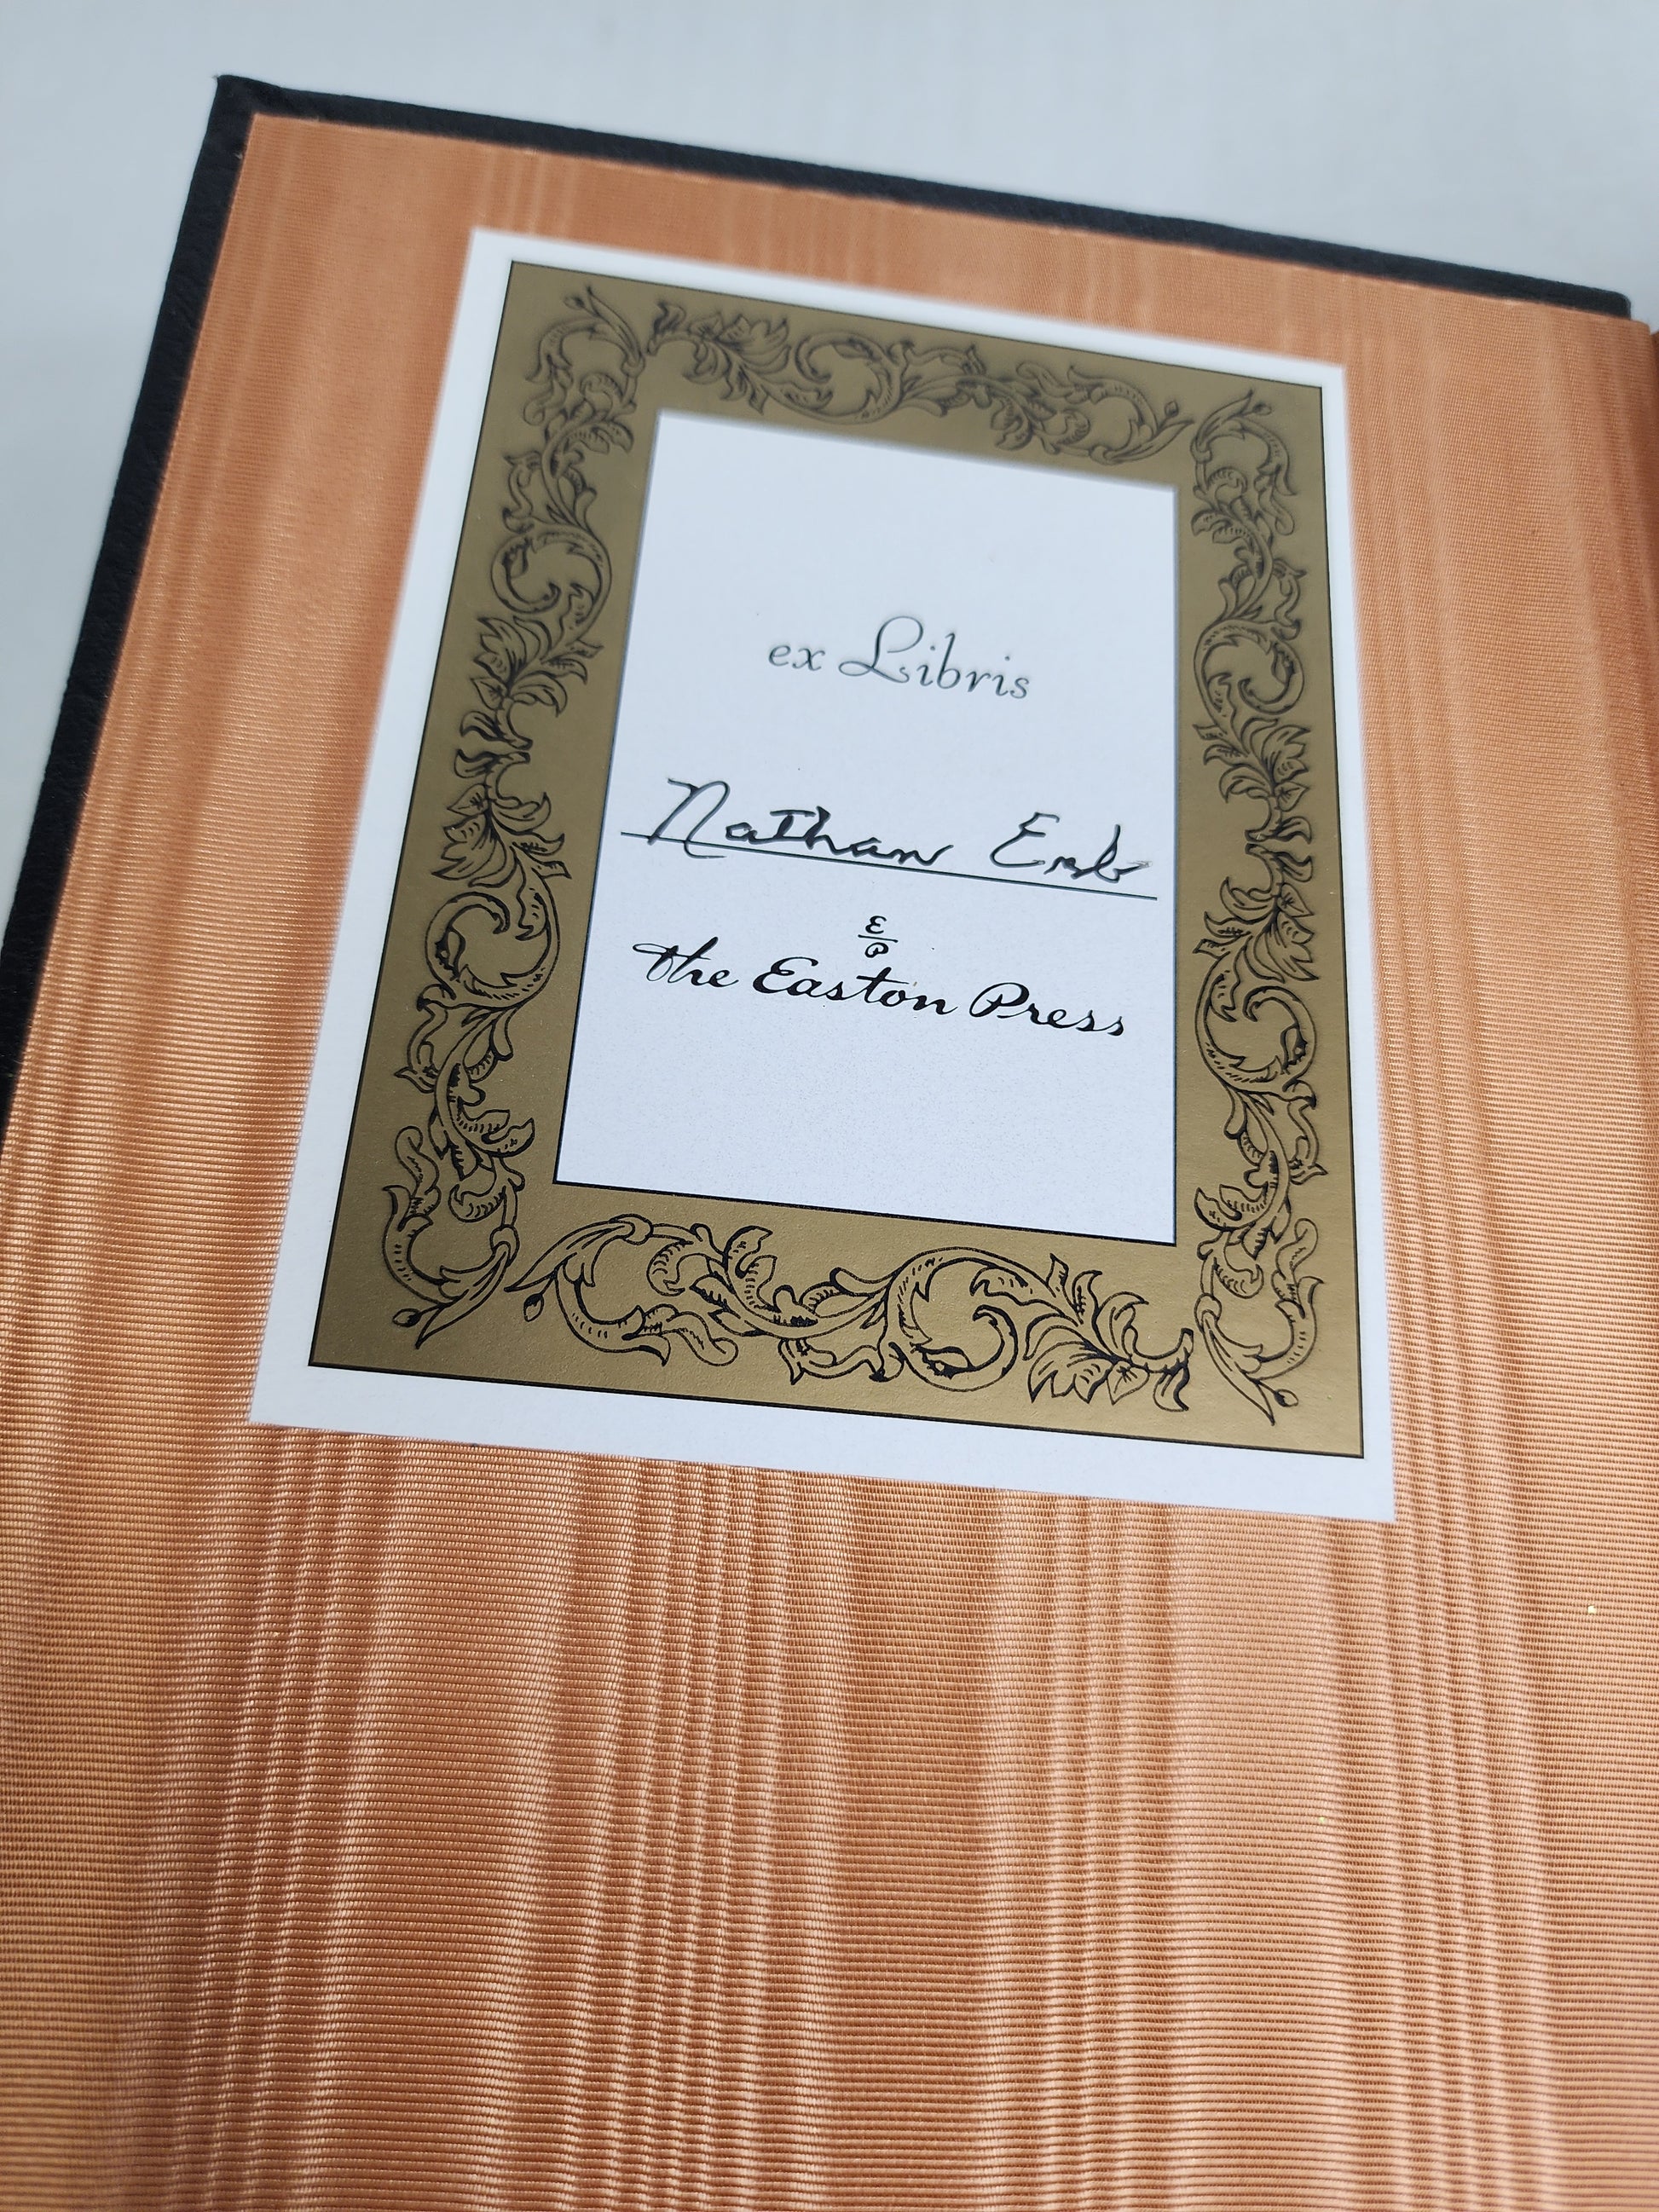 ex Libris
Nathan
E
P
the Easton Press